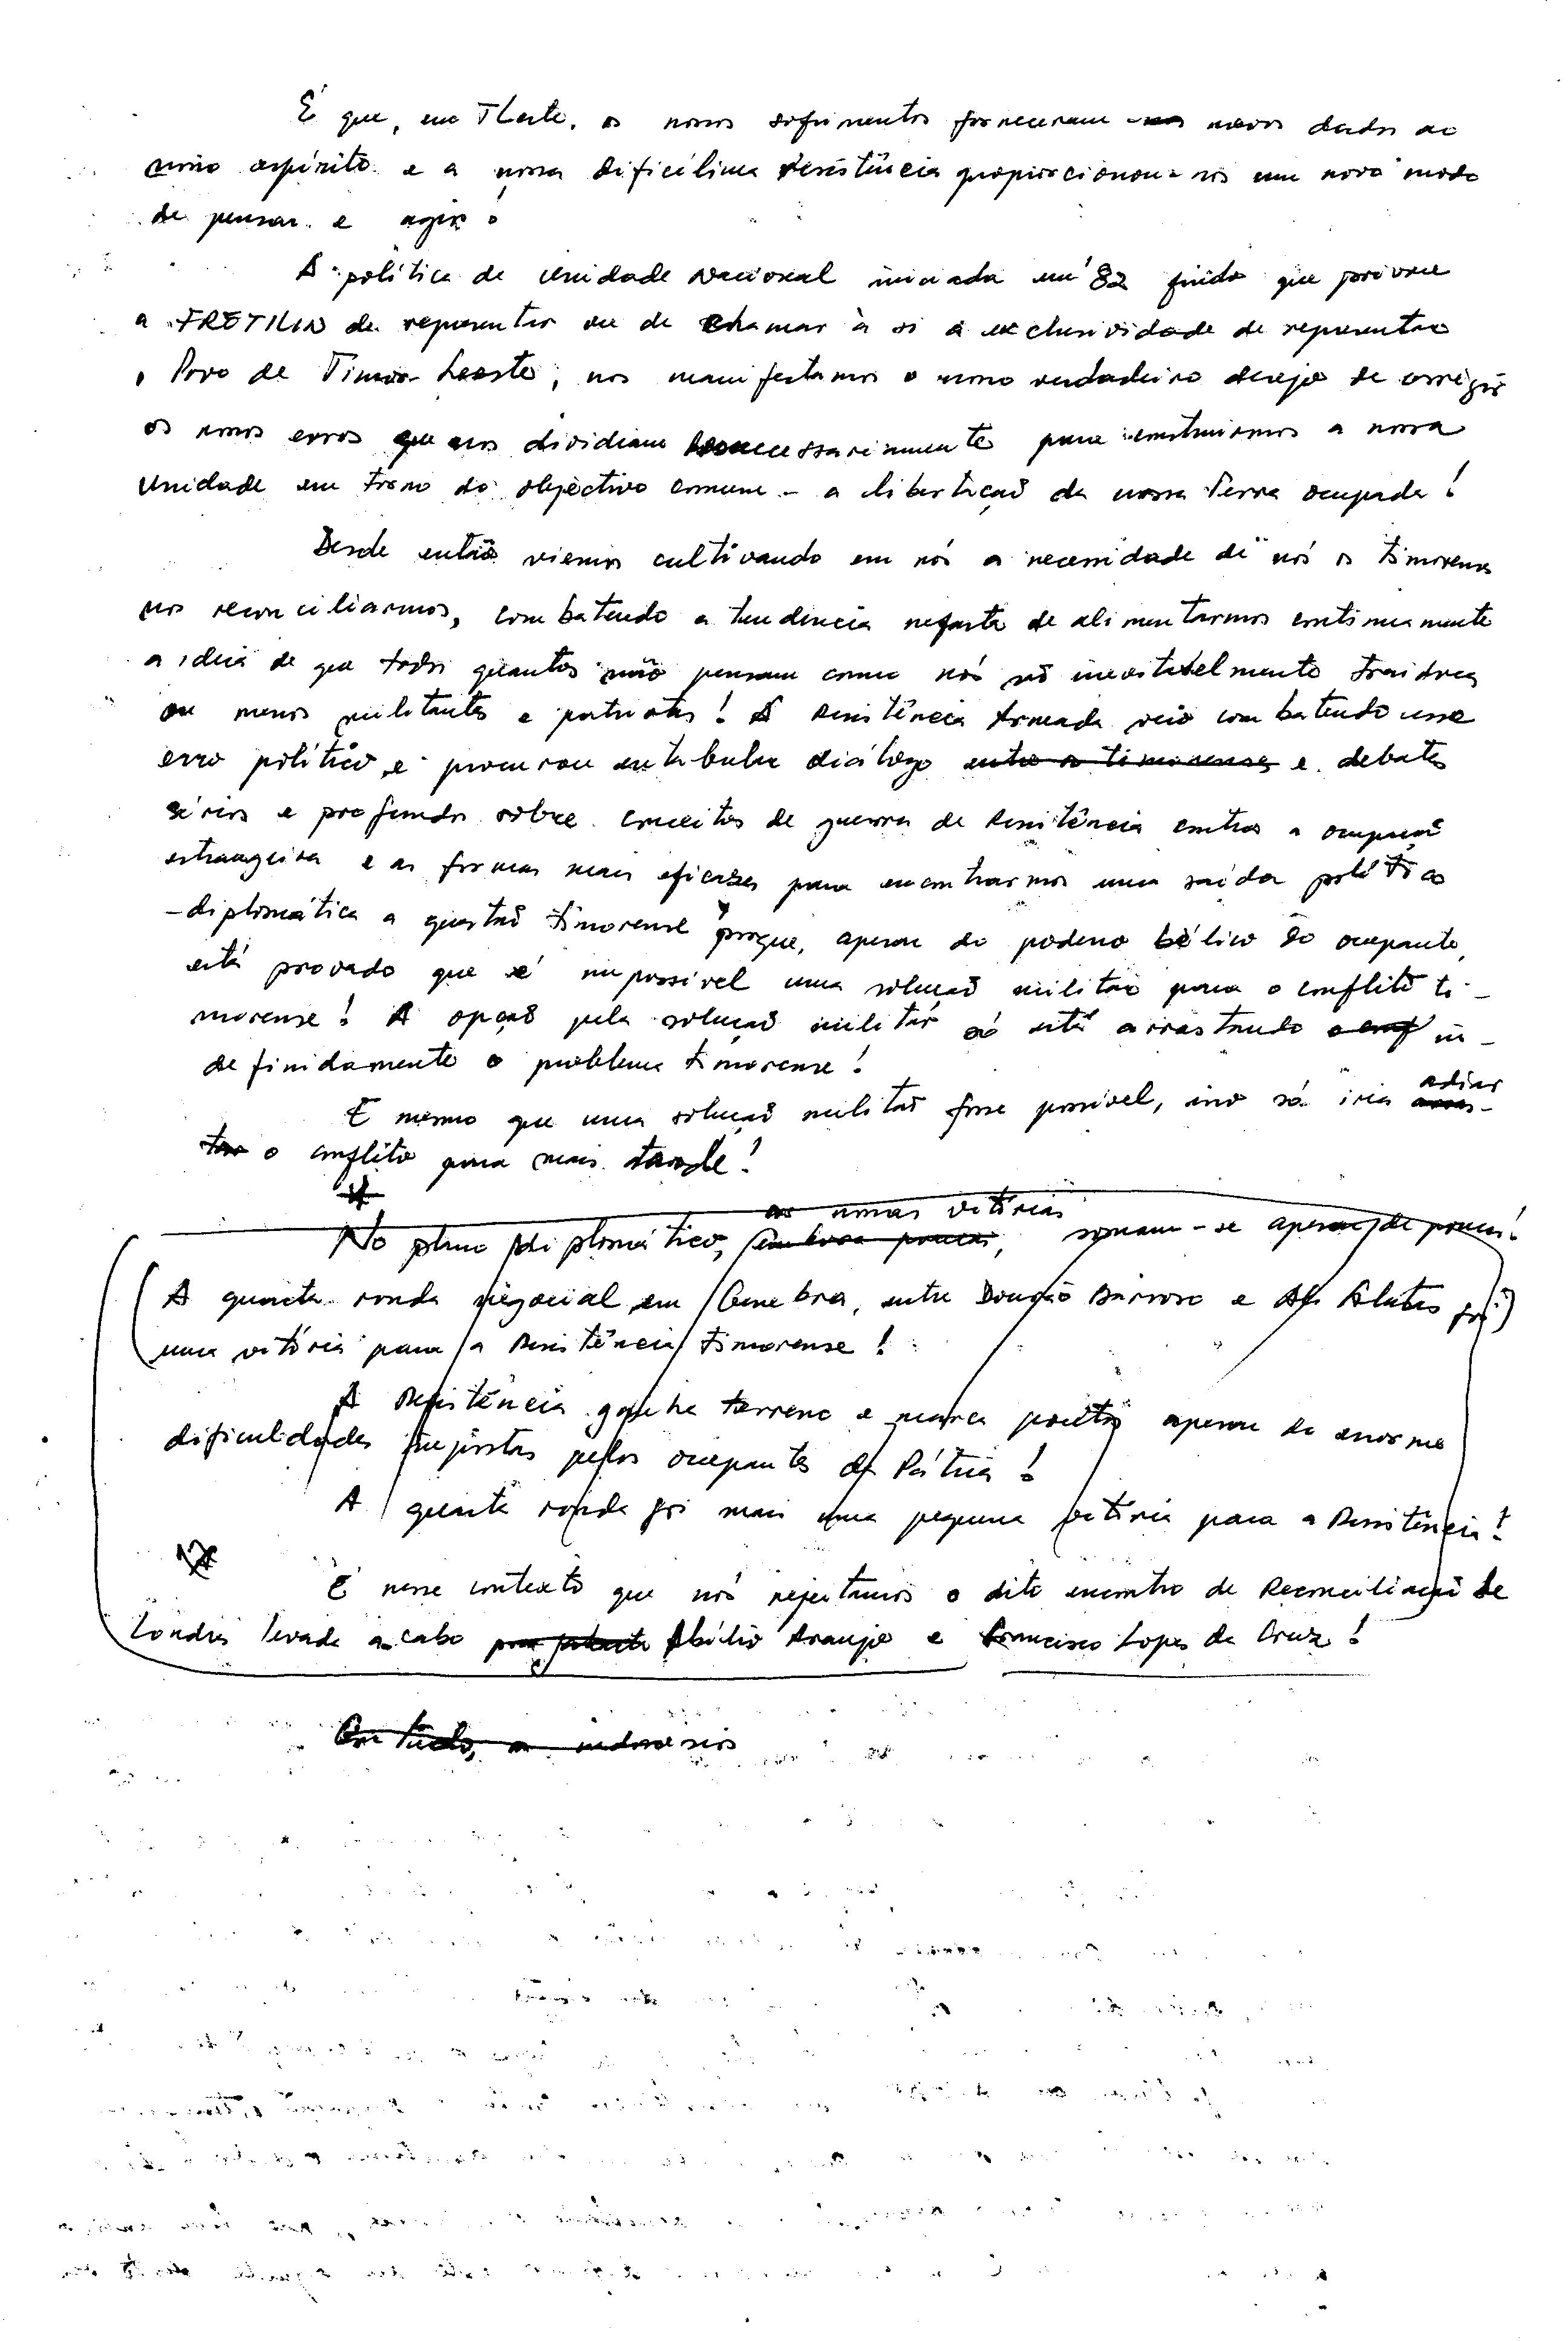 É que, em T. Leste, os nossos sofrimentos forneceram novos dados ao
nosso espírito e a nossa dificílima Resistência proporcionou-nos um novo modo
de pensar e agir!
A política de Unidade Nacional iniciada em 82 que
a FRETILIN de representar ou de chamar à si a exclusividade de representar
o Povo de Timor-Leste; nos manifestamos o nosso verdadeiro desejo de corrigir
os nossos erros que nos dividiam para construirmos a nossa
Unidade em trono do objectivo comum - a libertação da nossa Terra ocupada!
Desde então viemos cultivando em nós a necessidade de nós os timorenses
nos reconciliarmos, combatendo a tendência nefasta de alimentarmos continuamente
a ideia de que todos quantos não pensam como nós são inevitavelmente traidores
ou menos militantes e patriotas! A Resistência Armada veio combatendo esse
erro político e procurou entabular diálogo entre os timorenses e debates
sérios e profundos sobre conceitos de guerra de Resistência contra a ocupação
estrangeira e as formas mais eficazes para encontrarmos uma saída político
-diplomática a questão timorense porque, apesar do poderio bélico do ocupante,
está provado que é impossível uma solução militar para o conflito ti-
morense! A opção pela solução militar só está arrastando o conf in-
definidamente o problema timorense!
E mesmo que uma solução militar fosse possível, isso só iria adiar arras-
tar o conflito para mais tarde!
No plano diplomático, embora poucas, as nossas vitórias somam-se apesar de poucas!
A quinta ronda negocial em Genebra, entre Durão Barroso e Ali Alatas foi
uma vitória para a Resistência timorense!
A Resistência ganha terreno e marca pontos apesar de enorme
dificuldades impostas pelos ocupantes da Pátria!
A quinta ronda foi mais uma pequena vitória para a Resistência!
É nesse contexto que nós rejeitamos o dito encontro de Reconciliação de
Londres levado a cabo por Abílio Araujo e Francisco Lopes da Cruz!
Contudo, os indonésios